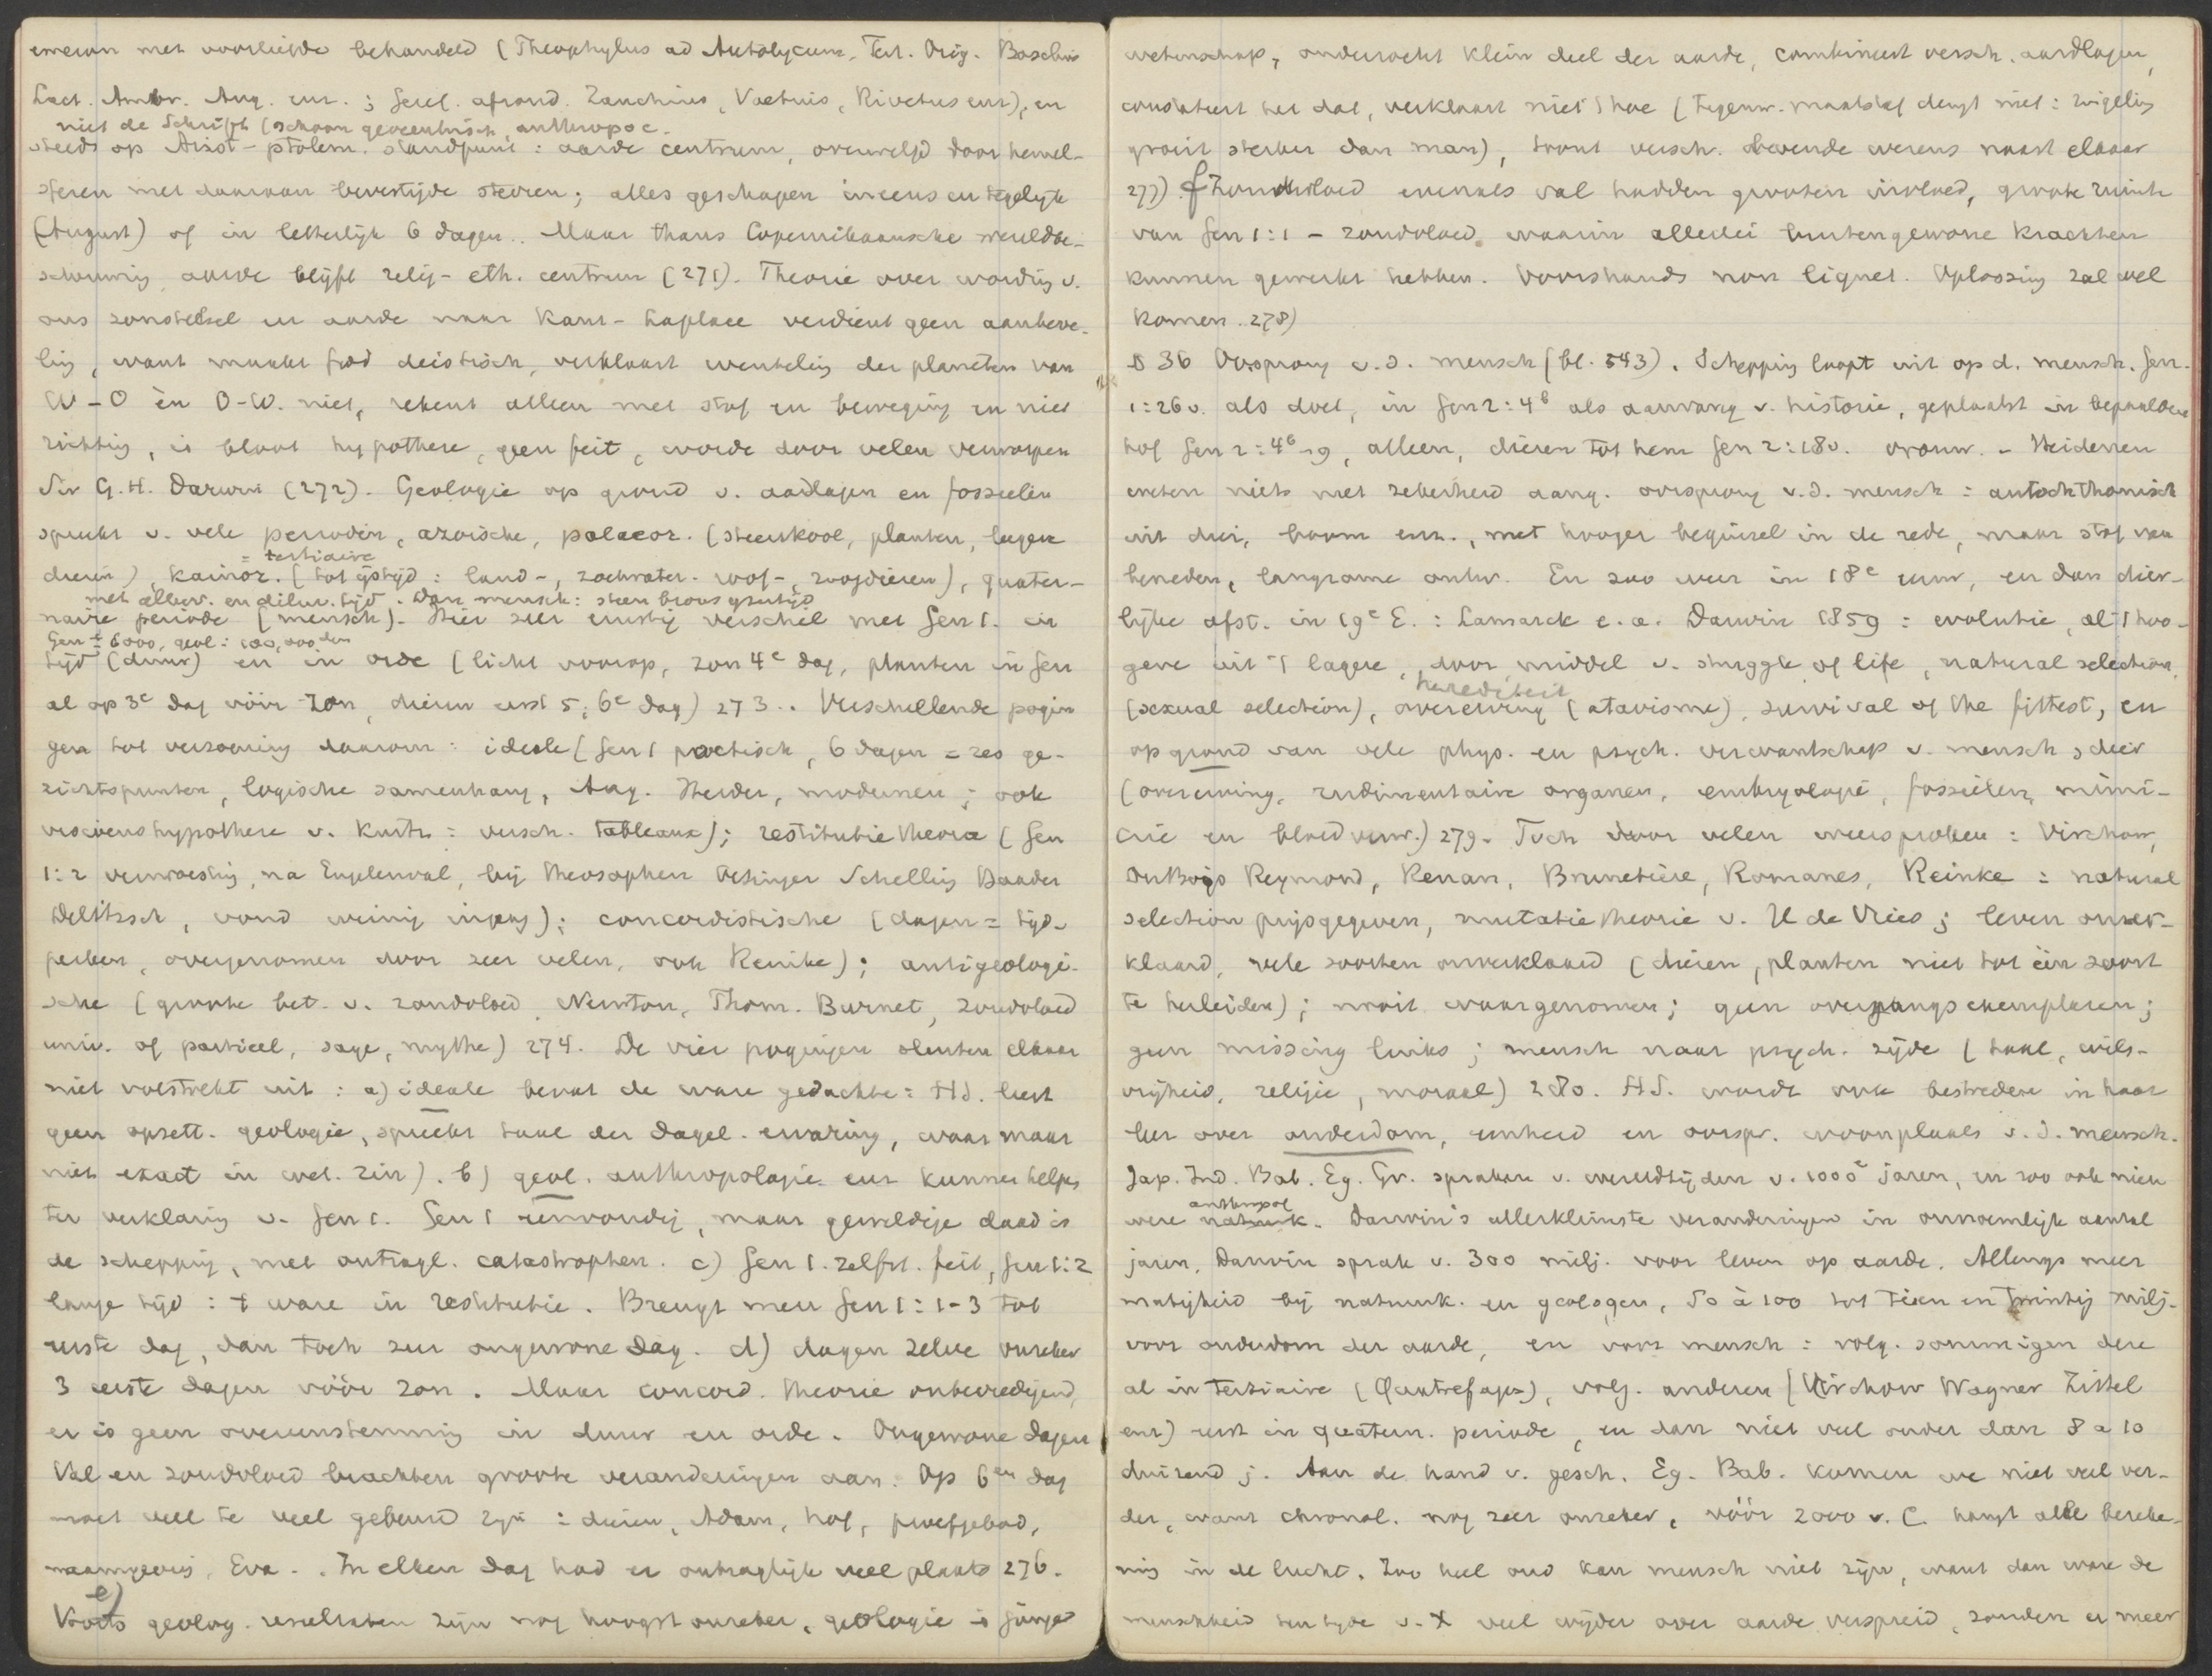 emeron met voorliefde behandeld (Theophylus ad Autolycum, Tert. Orig. Basilius
Lact. Ambr. Aug. enz.; Geref. afzond. Zanchius, Voetius, Rivetus enz), en
niet de Schrift (schoon geocentrisch, anthropoc.
steeds op Arist-ptolem. standpunt: aarde centrum, overwelfd door hemel-
sferen met daaraan bevestigde sterren; alles geschapen ineens en tegelijk
(August) of in letterlijk 6 dagen.. Maar thans Copernikaansche wereldbe-
schouwing, aarde blijft relig-eth. centrum (271). Theorie over wording v.
ons zonnestelsel en aarde naar Kant-Laplace verdient geen aanbeve-
ling, want maakt God deistisch, verklaart wenteling der planeten van
W-O èn O-W. niet, rekent alleen met stof en beweging en niet
richting, is bloot hypothese, geen feit, wordt door velen verworpen
Sir G.H. Darwin (272). Geologie op grond v. aardlagen en fossielen
spreekt v. vele perioden, azoische, palaeoz. (steenkool, planten, lagere
= tertiaire
dieren), kainoz. (tot ijstijd: land-, zoetwater- roof-, zoogdieren), quater-
met alluv. en diluv. tijd. Dan mensch: steen brons ijzertijd
naire periode (mensch). Hier zeer ernstig verschil met Gen 1. in
Gen ± 6000, geol: 100,000den
tijd (duur) en in orde (licht voorop, zon 4e dag, planten in Gen
al op 3e dag vóór zon, dieren eerst 5, 6e dag) 273.. Verschillende pogin
gen tot verzoening daarom: ideale (Gen 1 poetisch, 6 dagen = zes ge-
zichtspunten, logische samenhang, Aug. Herder, modernen; ook
visioenshypothese v. Kurtz: versch. tableaux); restitutie theorie (Gen
1:2 verwoesting, na Engelenval, bij theosophen Oetinger Schelling Baader
Delitzsch, vond weinig ingang); concordistische (dagen = tijd-
perken, overgenomen door zeer velen, ook Reinke); antigeologi-
sche (groote bet. v. zondvloed, Newton, Thom. Burnet, zondvloed
univ. of partieel, sage, mythe) 274. De vier pogingen sluiten elkaar
niet volstrekt uit: a) ideale bevat de ware gedachte: H.S. leert
geen opzett. geologie, spreekt taal der dagel. ervaring, waar maar
niet exact in wet. zin). b) geol. anthropologie enz kunnen helpen
ter verklaring v. Gen 1. Gen 1 eenvoudig, maar geweldige daad is
de schepping, met ontzagl. catastrophen. c) Gen 1. zelfst. feit, Gen 1:2
lange tijd: 't ware in restitutie. Brengt men Gen 1:1-3 tot
eerste dag, dan toch zeer ongewone dag. d) dagen zelve onzeker
3 eerste dagen vóór zon. Maar concord. theorie onbevredigend,
er is geen overeenstemming in duur en orde. Ongewone dagen
Val en zondvloed brachten groote veranderingen aan. Op 6en dag
moet veel te veel gebeurd zijn: dieren, Adam, hof, proefgebod,
naamgeving, Eva.. In elken dag had er ontzaglijk veel plaats 276.
e)
Voorts geolog. resultaten zijn nog hoogst onzeker, geologie is jonge
wetenschap, onderzocht klein deel der aarde, combineert versch. aardlagen,
constateert het dat, verklaart niet 't hoe (tegenw. maatstaf deugt niet: zuigeling
groeit sterker dan man), toont versch. levende wezens naast elkaar
277) f) zondvloed evenals val hadden grooten invloed, groote ruimte
van Gen 1:1 - zondvloed, waarin allerlei buitengewone krachten
kunnen gewerkt hebben. Voorshands non liquet. Oplossing zal wel
komen. 278)
§ 36 Oorsprong v.d. mensch (bl. 543). Schepping loopt uit op d. mensch. Gen.
1:26v. als doel, in Gen 2:4b als aanvang v. historie, geplaatst in bepaalden
hof Gen 2:4b-9, alleen, dieren tot hem Gen 2:18v. vrouw. - Heidenen
weten niets met zekerheid aang. oorsprong v.d. mensch: autochthonisch
uit dier, boom enz., met hooger beginsel in de rede, maar stof van
beneden, langzame ontw. En zoo weer in 18e eeuw, en dan dier-
lijke afst. in 19e E.: Lamarck e.a. Darwin 1859: evolutie, al 't hoo-
gere uit 't lagere, door middel v. struggle of life, natural selection,
herediteit
(sexual selection), overerving (atavisme), survival of the fittest, en
op grond van vele phys. en psych. verwantschap v. mensch, dier
(overerving, rudimentaire organen, embryologie, fossielen, mimi-
crie en bloedverw.) 279. Toch door velen weersproken: Virchow,
DuBois Reymond, Renan, Brunetière, Romanes, Reinke: natural
selection prijsgegeven, mutatie theorie v. H de Vries; leven onver-
klaard, vele soorten onverklaard (dieren, planten niet tot één soort
te herleiden); nooit waargenomen; geen overgangs exemplaren;
geen missing links; mensch naar psych. zijde (taal, wils-
vrijheid, religie, moraal) 280. H.S. wordt ook bestreden in haar
leer over ouderdom, eenheid en oorspr. woonplaats v.d. mensch.
Jap. Ind. Bab. Eg. Gr. spraken v. wereldtijden v. 1000e jaren, en zoo ook nieu
anthropol
were natuurk. Darwin's allerkleinste veranderingen in onnoemlijk aantal
jaren, Darwin sprak v. 300 milj. voor leven op aarde. Allengs meer
matigheid bij natuurk. en geologen, 50 à 100 tot tien en twintig milj.
voor ouderdom der aarde, en voor mensch: volg. sommigen dere
al in tertiaire (Quatrefages), volg. anderen (Virchow Wagner Zittel
enz) eerst in quatern. periode, en dan niet veel ouder dan 8 a 10
duizend j. Aan de hand v. gesch. Eg. Bab. komen we niet veel ver-
der, want chronol. nog zeer onzeker, vóór 2000 v. C. hangt alle bereke-
ning in de lucht. Zoo heel oud kan mensch niet zijn, want dan ware de
menschheid ten tijde v. X veel wijder over aarde verspreid, zouden er meer